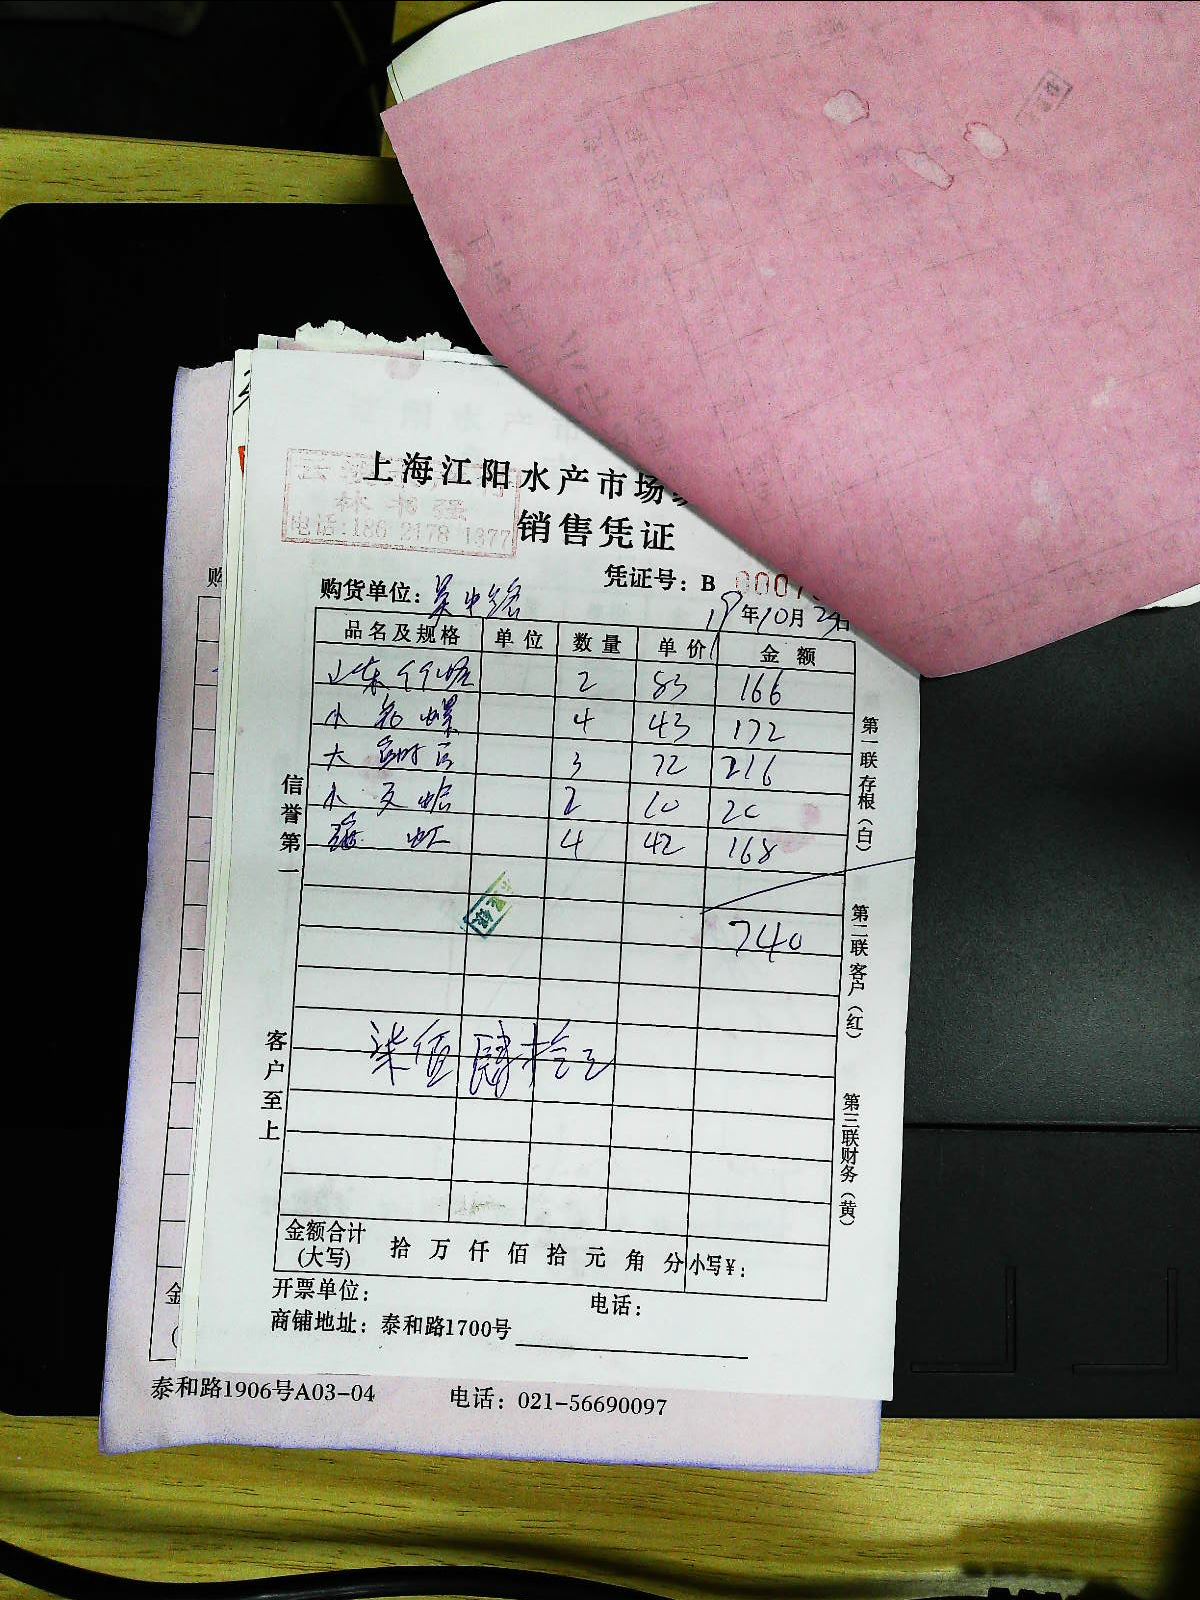 上海江阳水产市场
林书强
电话:186 2178 1377
销售凭证
凭证号：B 0007
购货单位：吴中路
19年10月
品名及规格 单位 数量 单价 金额
山东 2 83 166
小 螺 4 43 172
大 3 72 216
小 2 10 20
海虹 4 42 168
740
柒佰肆拾元
金额合计(大写) 拾 万 仟 佰 拾 元 角 分 小写¥：
开票单位： 电话：
商铺地址：泰和路1700号
信誉第一
客户至上
第一联存根（白）
第二联客户（红）
第三联财务（黄）
购
金
泰和路1906号A03-04 电话：021-56690097